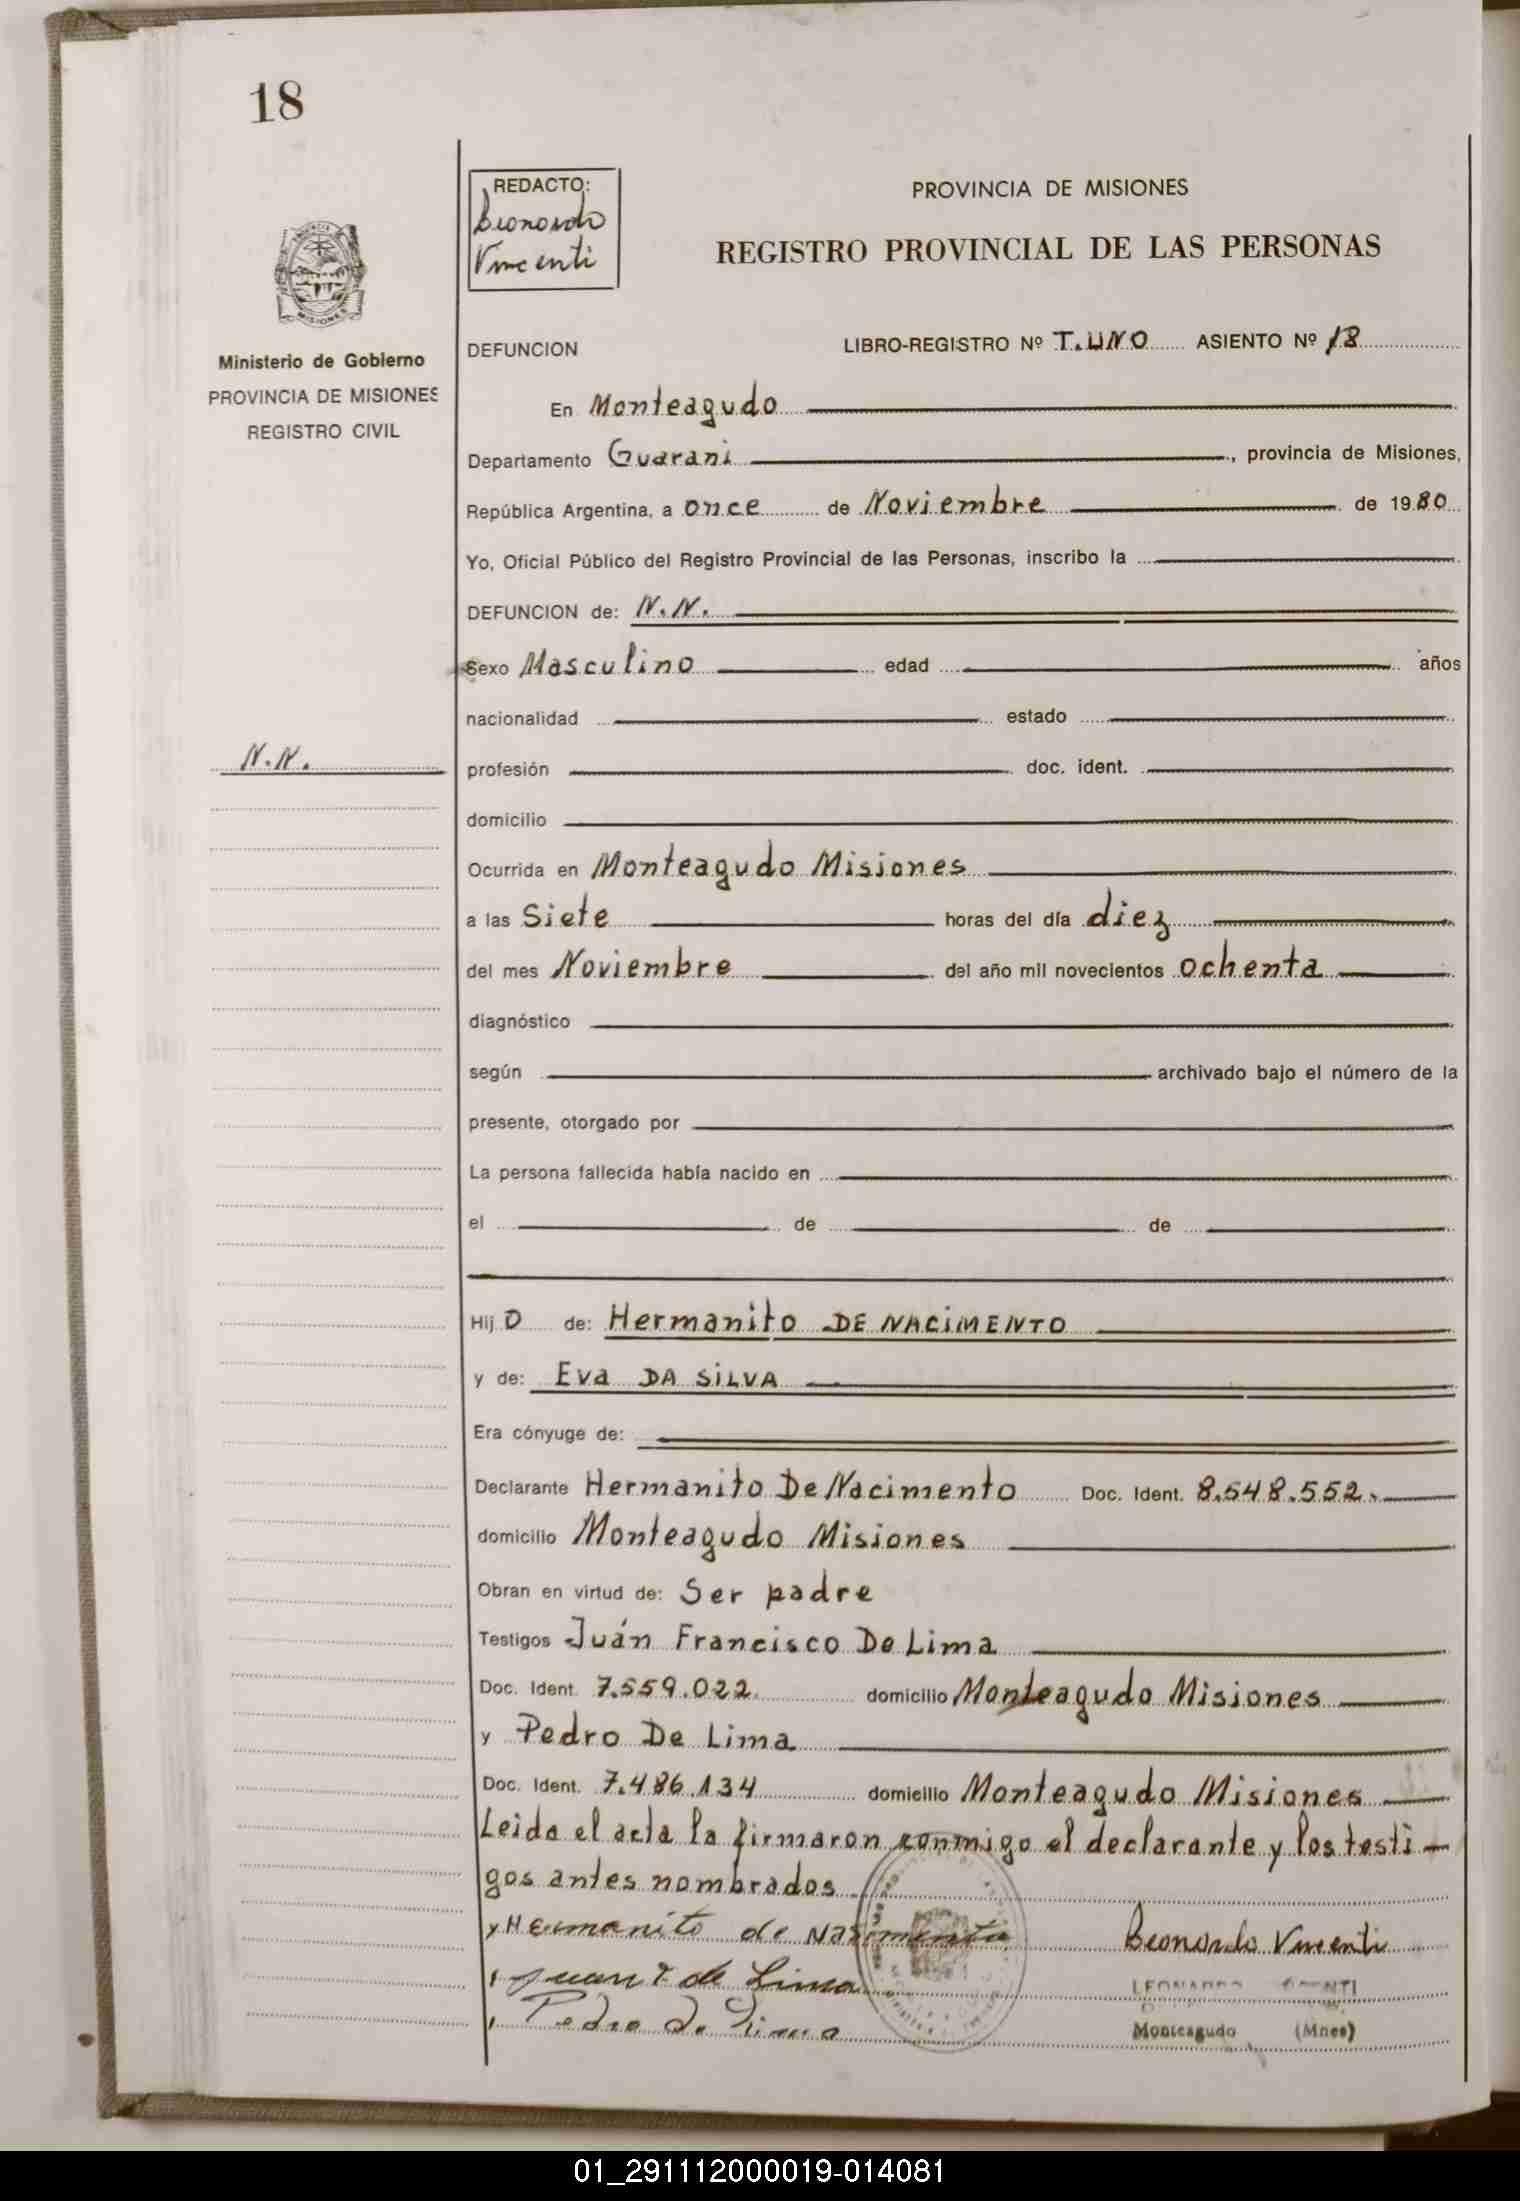 18
REDACTO:
Leonardo
Vincenti
PROVINCIA DE MISIONES
REGISTRO PROVINCIAL DE LAS PERSONAS
MISIONES
Ministerio de Gobierno
PROVINCIA DE MISIONES
REGISTRO CIVIL
DEFUNCION LIBRO-REGISTRO Nº T. UNO ASIENTO Nº 18
En Monteagudo
Departamento Guarani, provincia de Misiones,
República Argentina, a once de Noviembre de 1980
Yo, Oficial Público del Registro Provincial de las Personas, inscribo la
DEFUNCION de: N.N.
Sexo Masculino edad años
nacionalidad estado
N.N.
profesión doc. ident.
domicilio
Ocurrida en Monteagudo Misiones
a las Siete horas del día diez
del mes Noviembre del año mil novecientos ochenta
diagnóstico
según archivado bajo el número de la
presente, otorgado por
La persona fallecida había nacido en
el de de
Hij o de: Hermanito DE NACIMENTO
y de: Eva DA SILVA
Era cónyuge de:
Declarante Hermanito De Nacimento Doc. Ident. 8.548.552.
domicilio Monteagudo Misiones
Obran en virtud de: Ser padre
Testigos Juán Francisco De Lima
Doc. Ident. 7.559.022. domicilio Monteagudo Misiones
y Pedro De Lima
Doc. Ident. 7.486.134 domicilio Monteagudo Misiones
Leida el acta la firmaron conmigo el declarante y los testi-
gos antes nombrados
Hermanito de Nacimento Leonardo Vincenti
Juan F. de Lima LEONARDO
Pedro de Lima Monteagudo (Mnes)
01_291112000019-014081